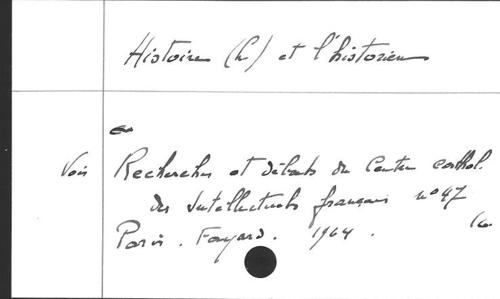 Histoire (L') et l'historien
Voir Recherches et débats du Centre cathol.
des Intellectuels français n° 47
Paris. Fayard. 1964.